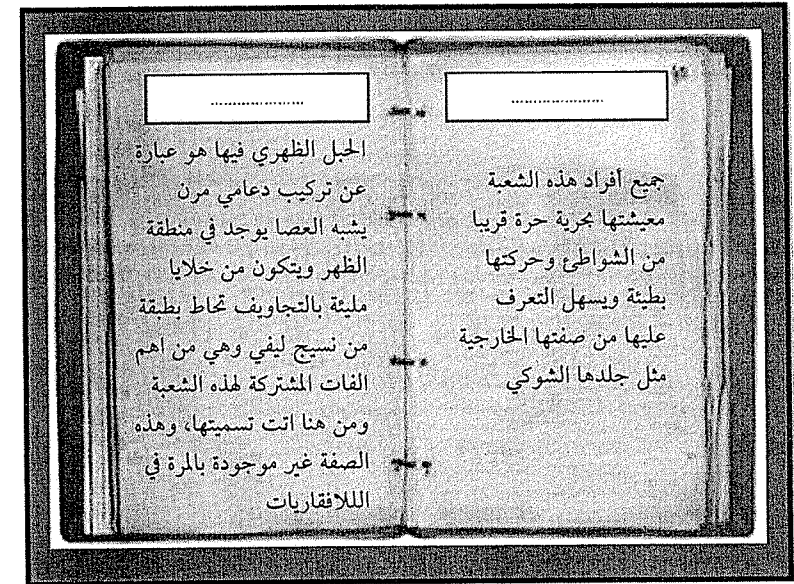 ....................
جميع أفراد هذه الشعبة
معيشتها بحرية حرة قريبا
من الشواطئ وحركتها
بطيئة ويسهل التعرف
عليها من صفتها الخارجية
مثل جلدها الشوكي
....................
الحبل الظهري فيها هو عبارة
عن تركيب دعامي مرن
يشبه العصا يوجد في منطقة
الظهر ويتكون من خلايا
مليئة بالتجاويف تحاط بطبقة
من نسيج ليفي وهي من اهم
الفات المشتركة لهذه الشعبة
ومن هنا اتت تسميتها، وهذه
الصفة غير موجودة بالمرة في
الللافقاريات